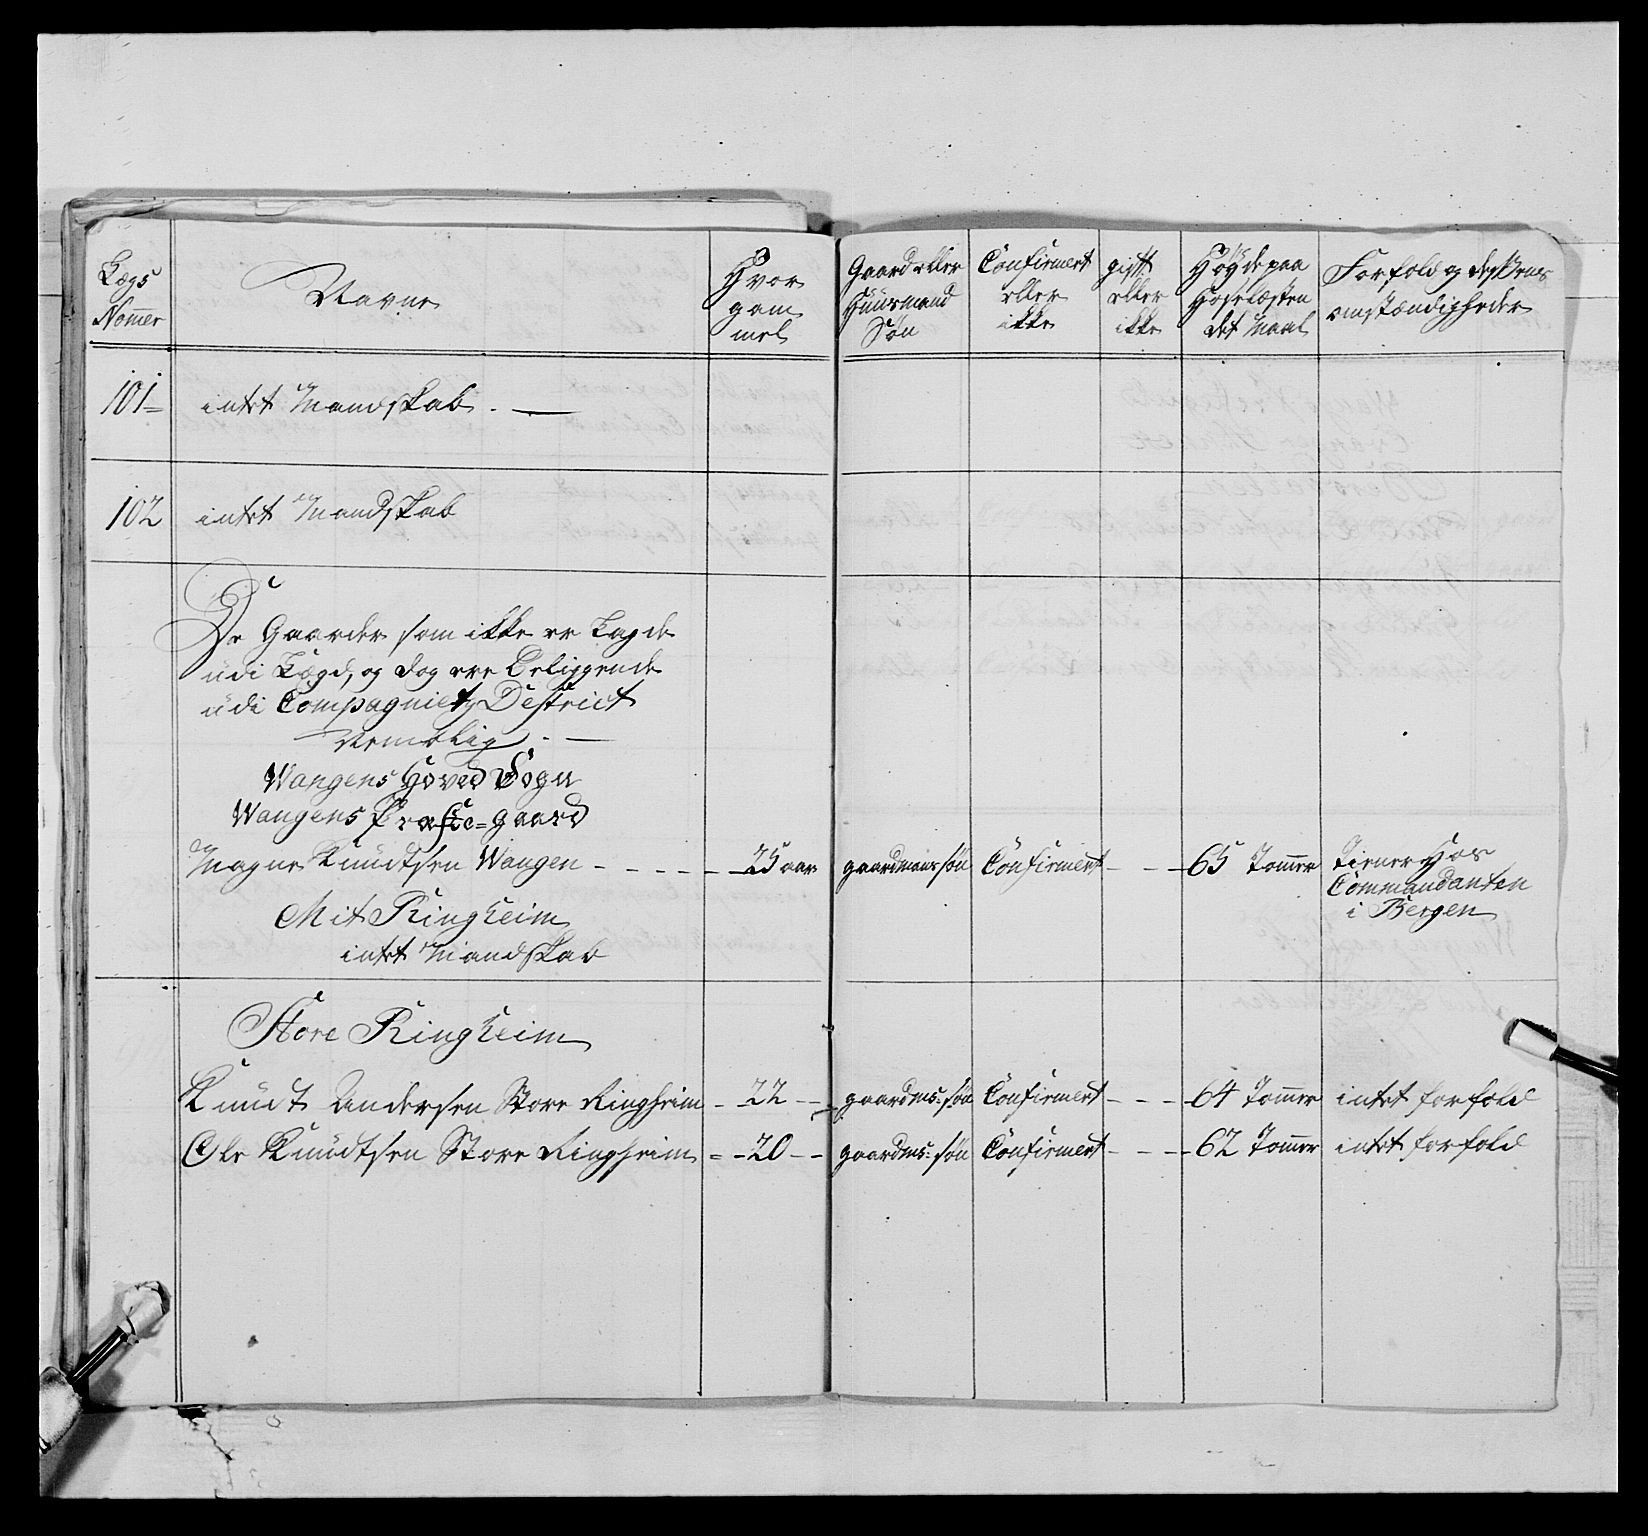 Lægs Nom̅er
Navne
Hvor gam mel
Gaard eller Huusmand Søn
Confirmert eller ikke
gift eller ikke
Høyde paa Hoselæsten det Maal
Forfold og deßens omstændigheder
101 intet Mandskab
102 intet Mandskab
De Gaarder som ikke er Lagde
udi Lægd, og dog ere beliggende
udi Compagniets District
Nemblig
Wangens Hoved Sogn
Wangens Præste-gaard
Magne Knudtsen Wangen - - - - 25 aar gaardmans søn Confirmert - - - 65 Tom̅er Tiener Hos
Commandanten
i Bergen
Mit Ringheim
intet Mandskab
Store Ringheim
Knudt Andersen Store Ringheim - 22 - - gaardms: søn Confirmert - - - 64 Tom̅er intet forfold
Ole Knudtsen Store Ringheim - 20 - - gaardms: søn Confirmert - - - 62 Tom̅er intet forfold